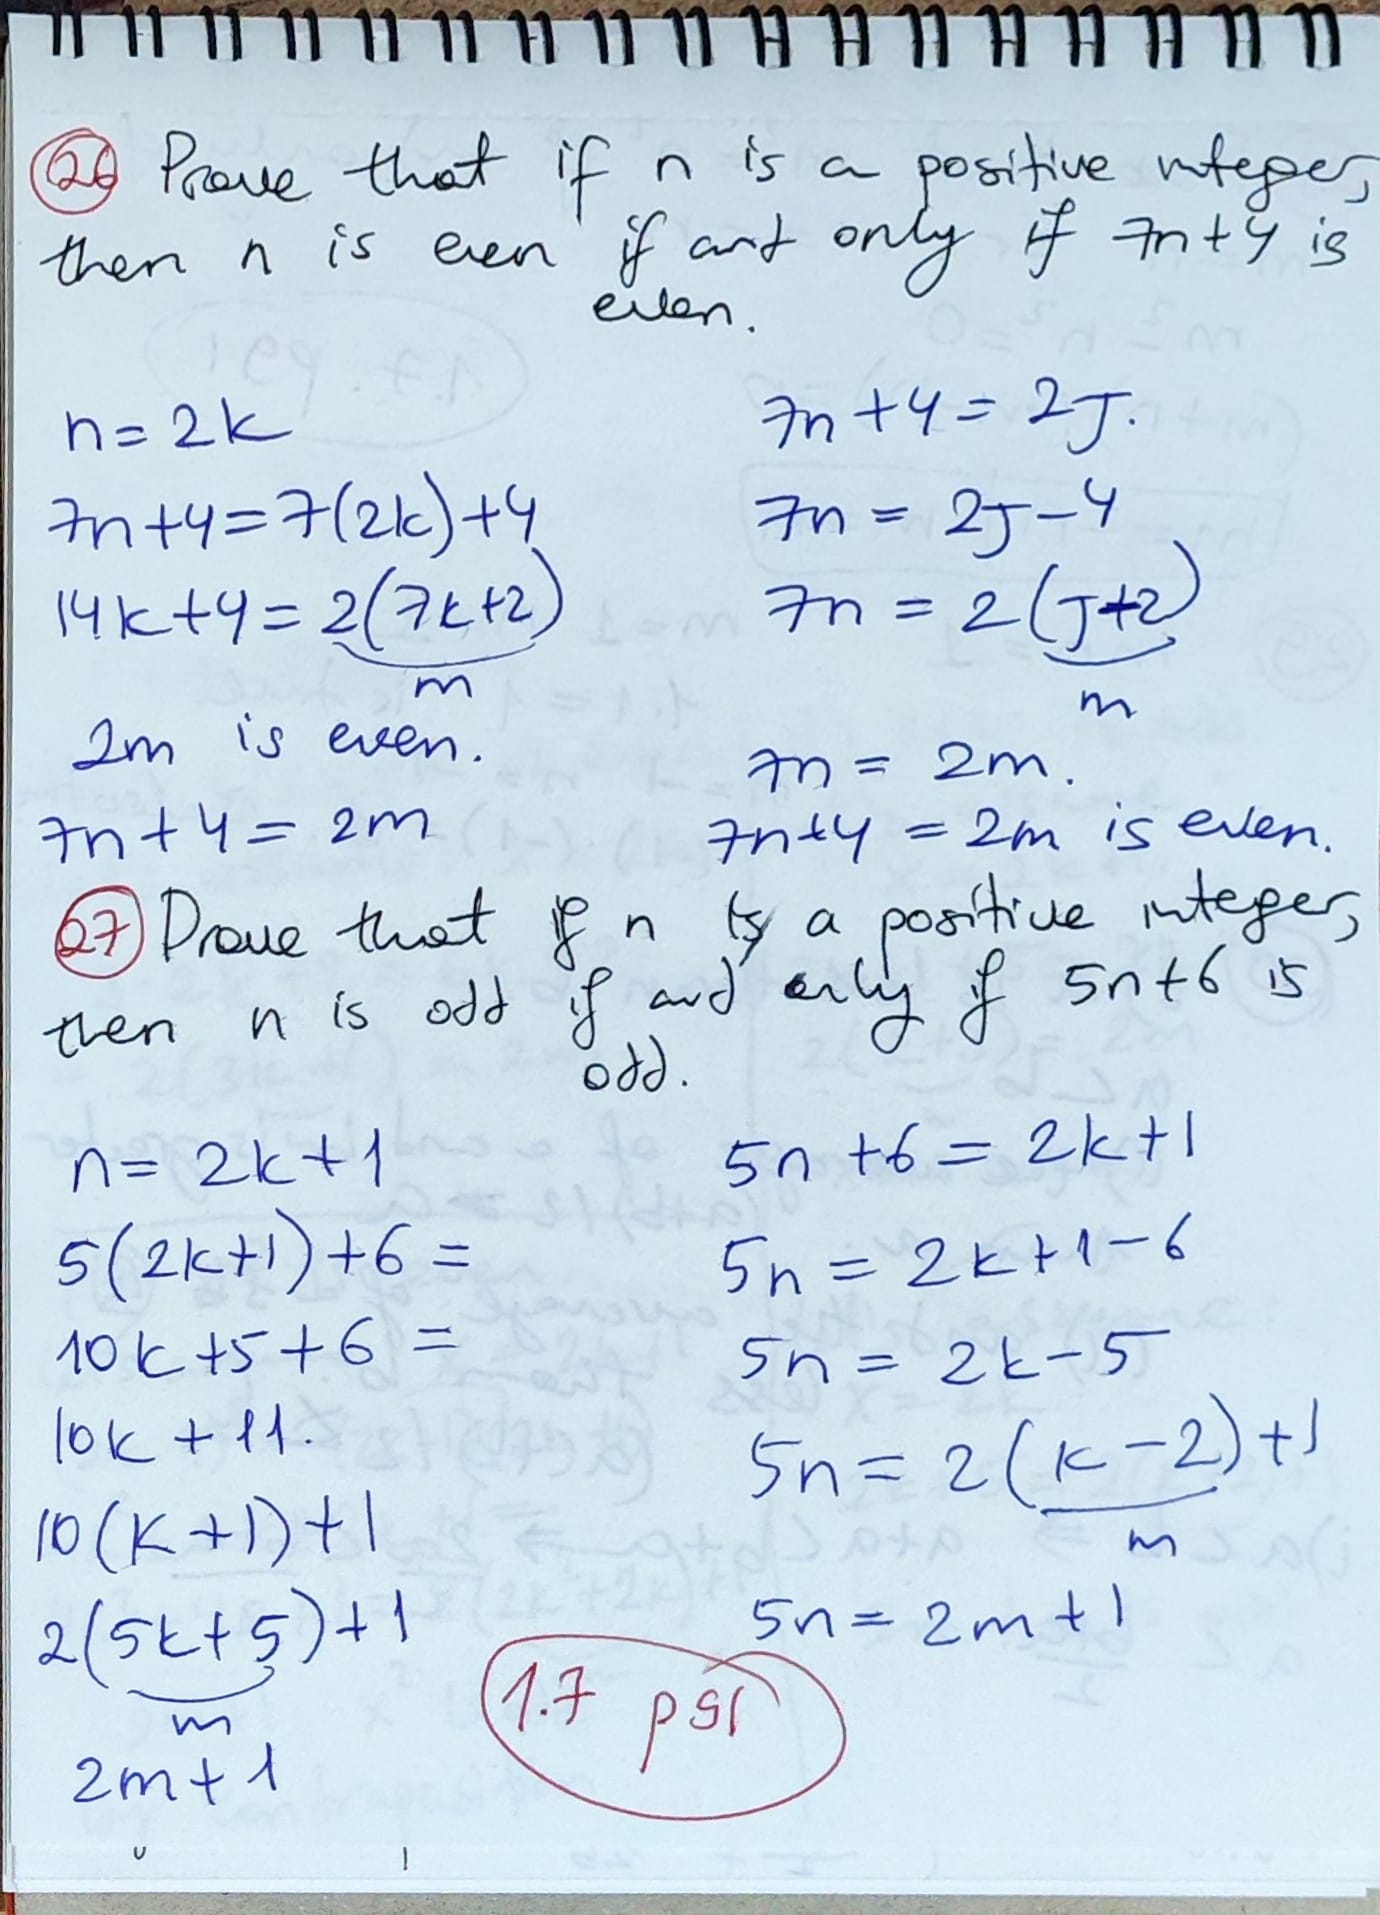 26 Prove that if n is a positive integer,
then n is even if and only if 7n+4 is
even.
n = 2k
7n+4 = 7(2k)+4
14k+4 = 2(7k+2)
m
2m is even.
7n+4 = 2m
7n+4 = 2J.
7n = 2J-4
7n = 2(J+2)
m
7n = 2m.
7n+4 = 2m is even.
27 Prove that if n is a positive integer,
then n is odd if and only if 5n+6 is
odd.
n = 2k+1
5(2k+1)+6 =
10k+5+6 =
10k+11.
10(k+1)+1
2(5k+5)+1
m
2m+1
5n+6 = 2k+1
5n = 2k+1-6
5n = 2k-5
5n = 2(k-2)+1
m
5n = 2m+1
1.7 pg1